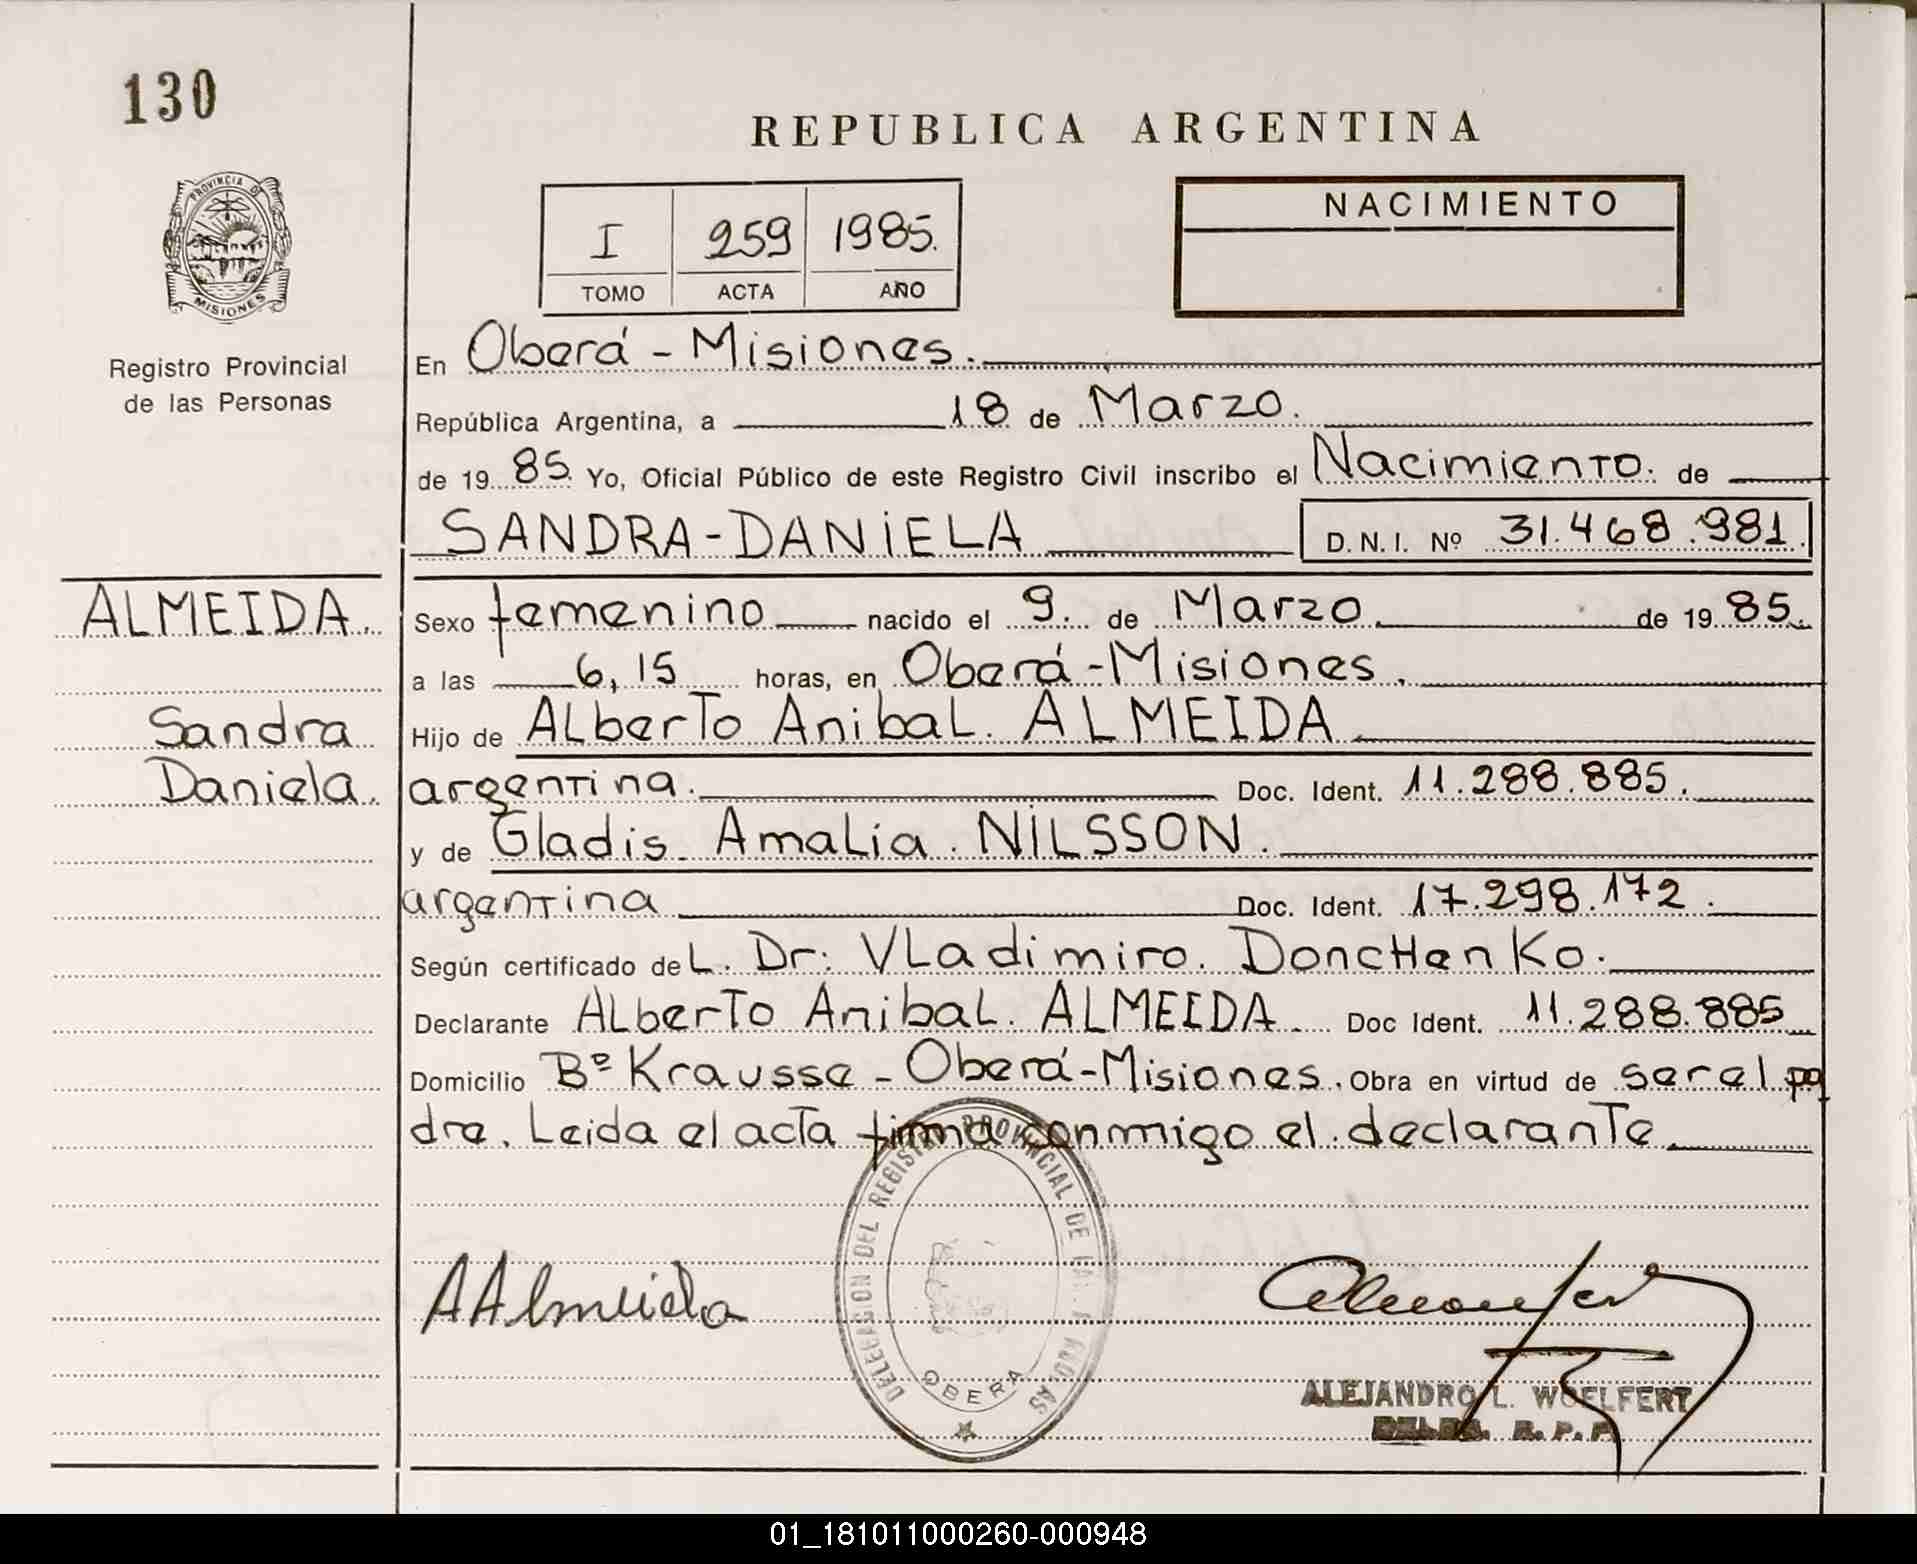 130
REPUBLICA ARGENTINA
PROVINCIA DE
MISIONES
Registro Provincial
de las Personas
I 259 1985.
TOMO ACTA AÑO
NACIMIENTO
En Oberá - Misiones.
República Argentina, a 18 de Marzo.
de 19 85. Yo, Oficial Público de este Registro Civil inscribo el Nacimiento. de
SANDRA-DANIELA D.N.I. Nº 31.468.981.
ALMEIDA.
Sandra
Daniela.
Sexo femenino nacido el 9. de Marzo. de 19 85.
a las 6,15 horas, en Oberá-Misiones.
Hijo de Alberto Anibal. ALMEIDA.
argentina. Doc. Ident. 11.288.885.
y de Gladis. Amalia. NILSSON.
argentina Doc. Ident. 17.298.172.
Según certificado deL. Dr: Vladimiro. DoncHenKo.
Declarante Alberto Anibal. ALMEIDA. Doc Ident. 11.288.885
Domicilio Bº Krausse - Oberá-Misiones. Obra en virtud de ser el pa
dre. Leida el acta firma conmigo el declarante.
AAlmeida
DELEGACION DEL REGISTRO PROVINCIAL DE LAS
OBERA
ALEJANDRO L. WOELFERT
R.P.P.
01_181011000260-000948